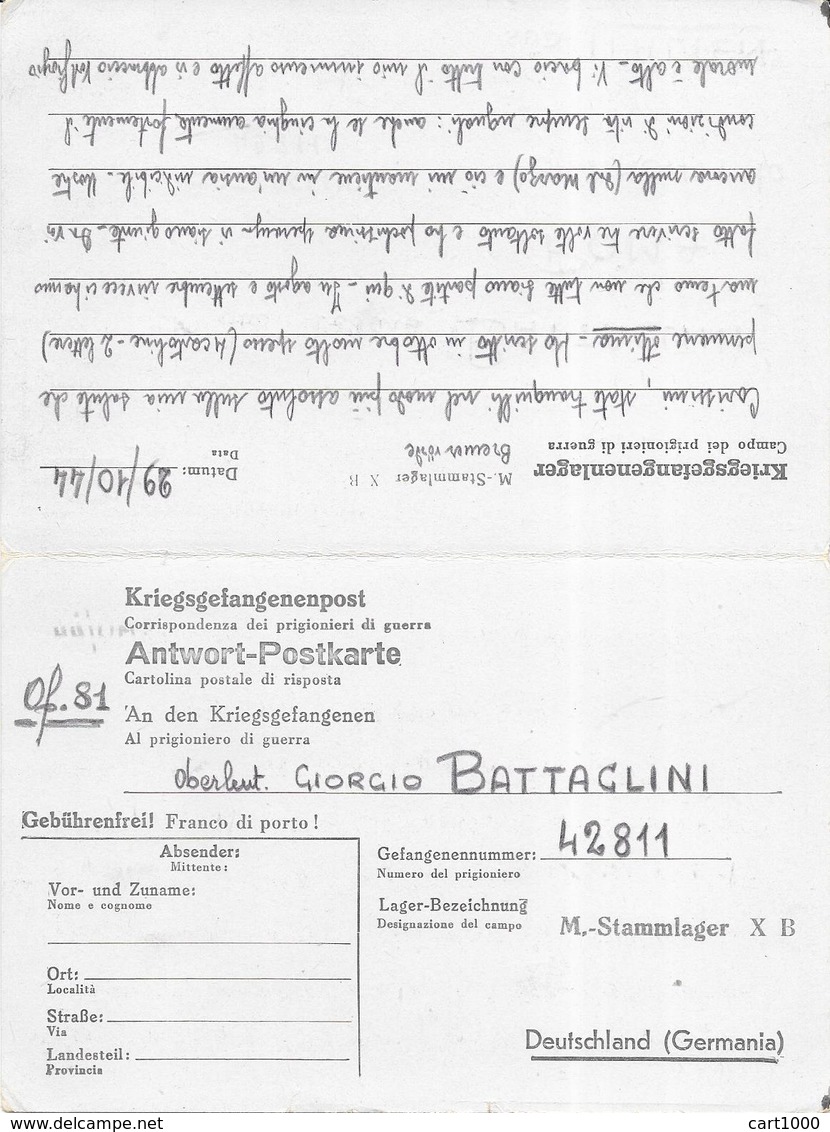 Kriegsgefangenenlager
Campo dei prigionieri di guerra
M.-Stammlager X B
Bremervörde
Datum: 29/10/44
Data
Carissimi, state tranquilli nel modo più assoluto sulla mia salute che
permane ottima - Ho scritto in ottobre molto spesso (4 cartoline - 2 lettere)
ma temo che non tutte siano partite di qui - In agosto e settembre invece ci hanno
fatto scrivere tre volte soltanto e ho pochissima speranza vi siano giunte - Da voi
ancora nulla (dal Marzo) e ciò mi mantiene in un'ansia indicibile - Nostre
condizioni di vita sempre uguali: anche se la cinghia aumenta fortemente il
morale è alto - Vi bacio con tutto il mio immenso affetto e vi abbraccio
Kriegsgefangenenpost
Corrispondenza dei prigionieri di guerra
Antwort-Postkarte
Cartolina postale di risposta
Of. 81
An den Kriegsgefangenen
Al prigioniero di guerra
Oberleut. GIORGIO BATTAGLINI
Gebührenfrei! Franco di porto!
Absender:
Mittente:
Vor- und Zuname:
Nome e cognome
Ort:
Località
Straße:
Via
Landesteil:
Provincia
Gefangenennummer: 42811
Numero del prigioniero
Lager-Bezeichnung
Designazione del campo
M.-Stammlager X B
Deutschland (Germania)
cart1000